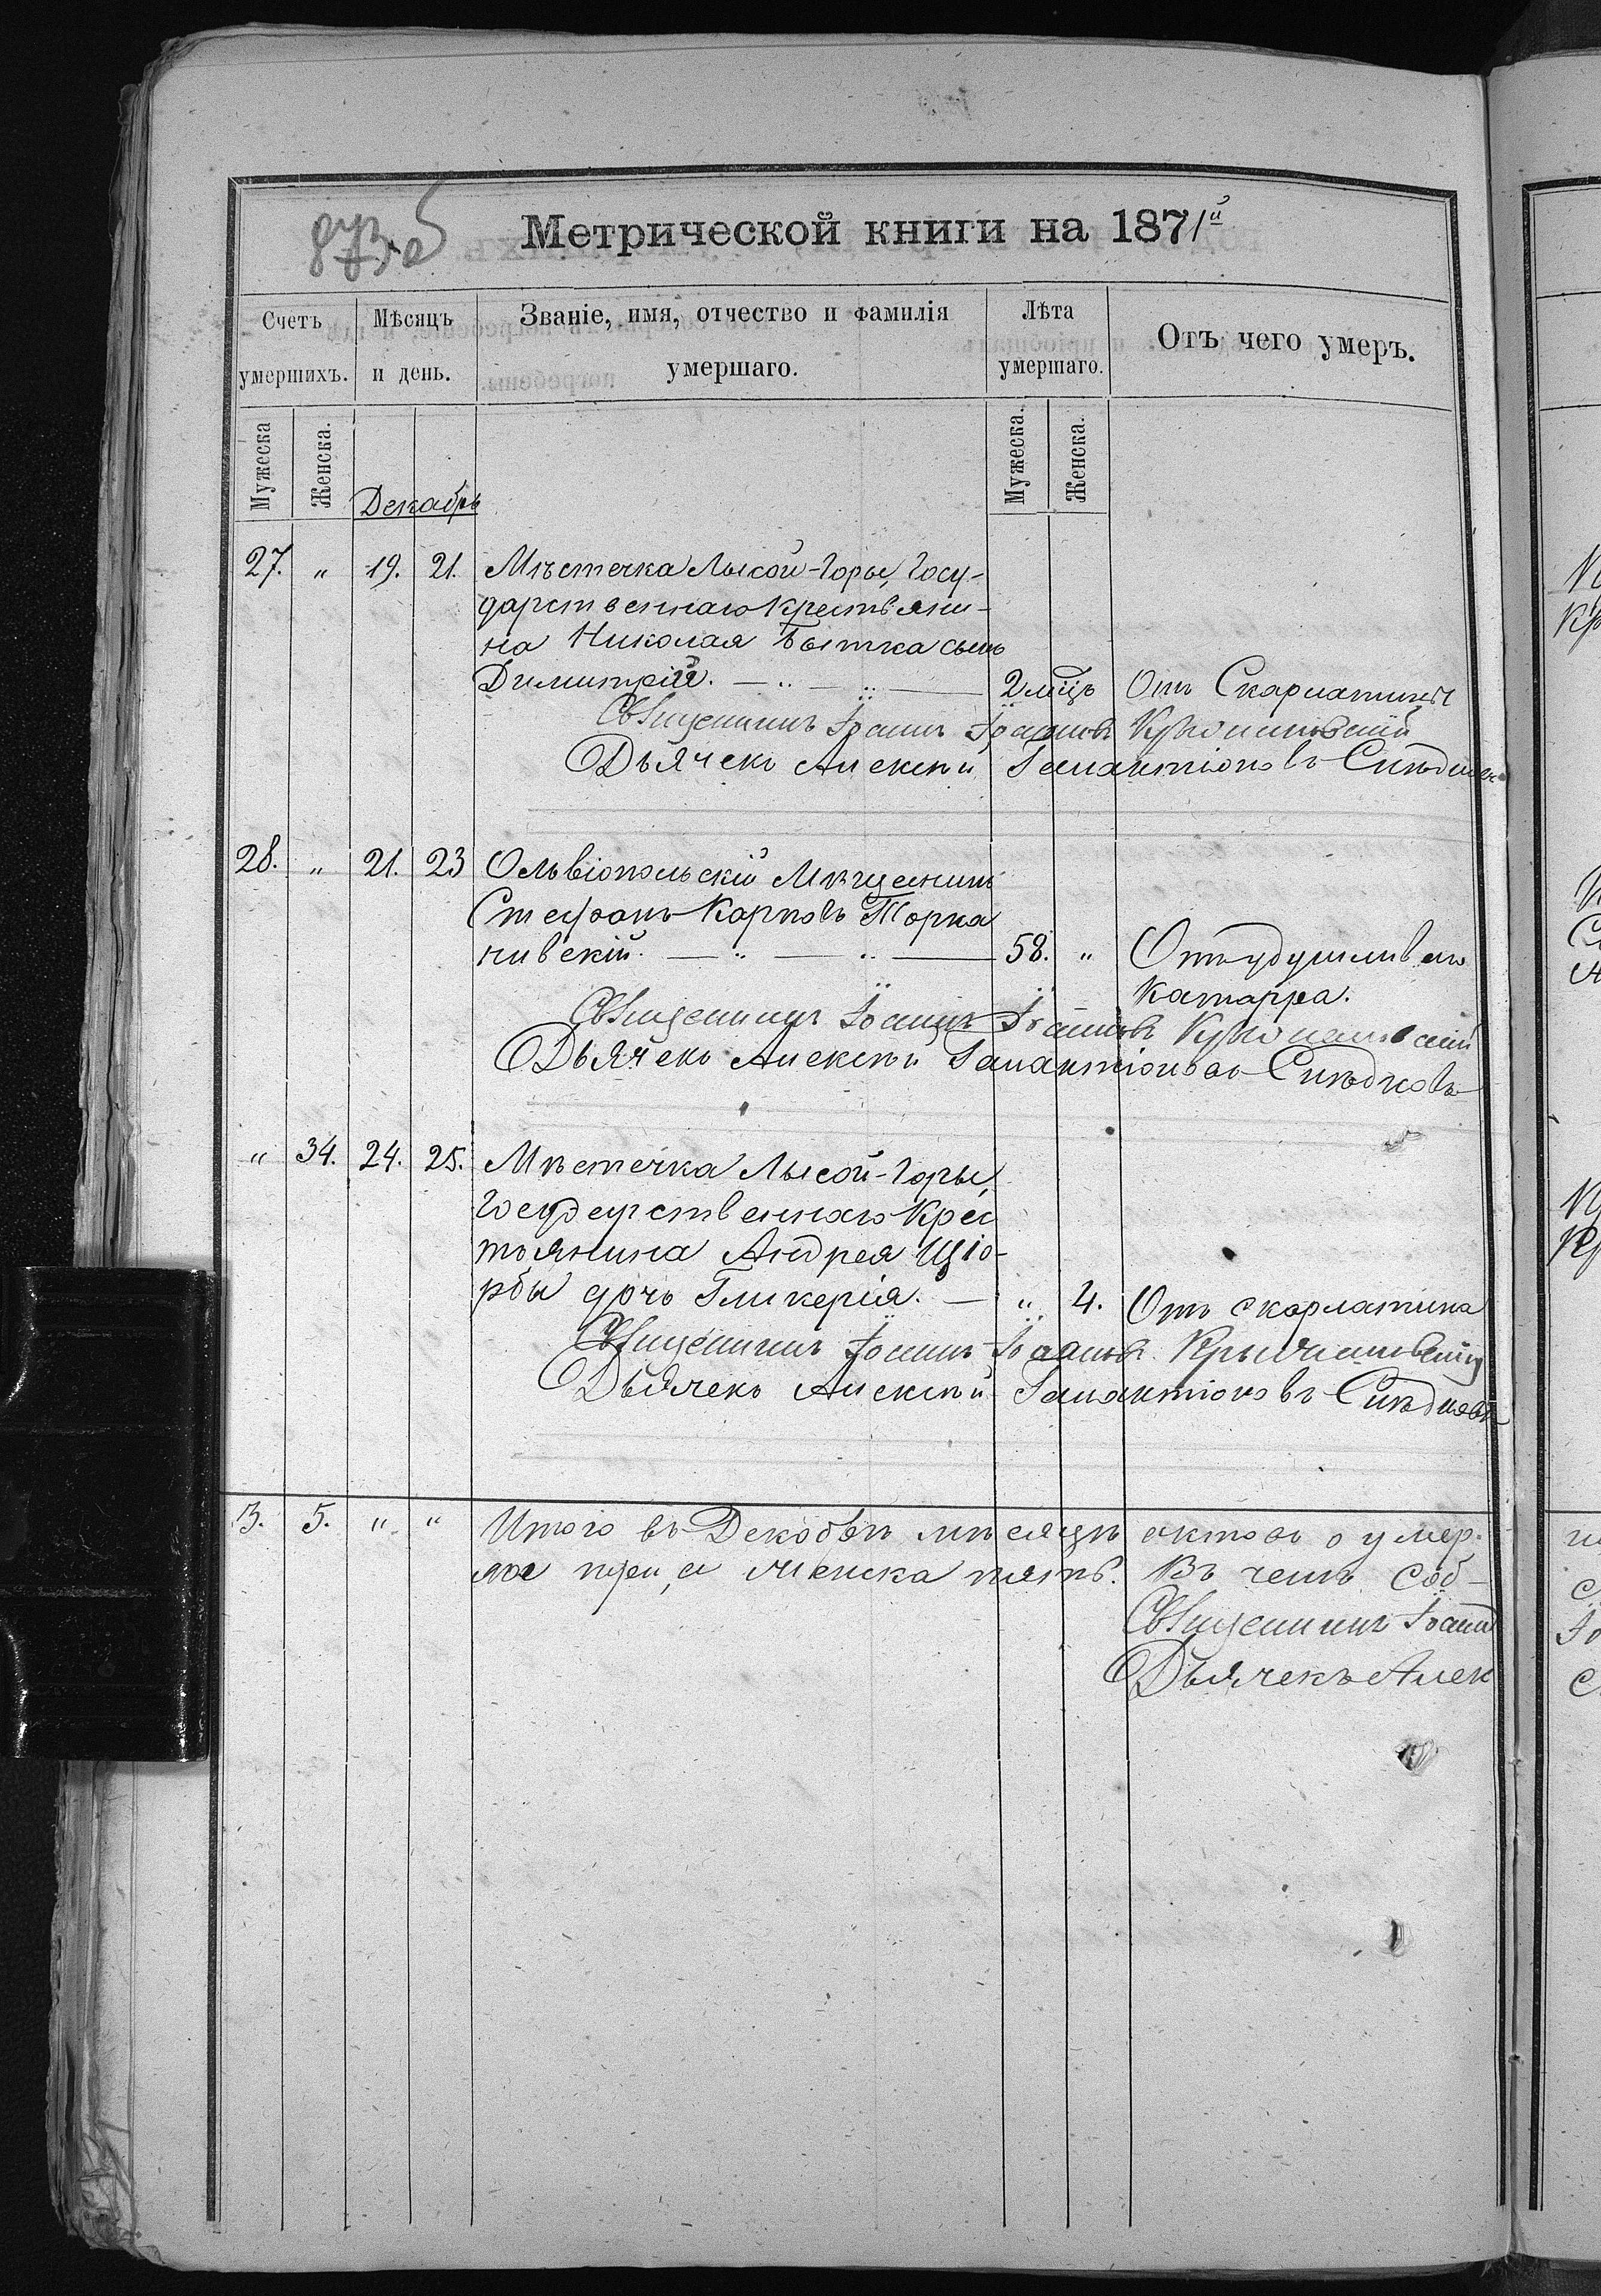 Метрической книги на 1871й
Счетъ умершихъ.
Мѣсяцъ и день.
Званіе, имя, отчество и фамилія умершаго.
Лѣта умершаго.
Отъ чего умеръ.
Мужеска
Женска.
Декабрь
Мужеска.
Женска.
27. " 19. 21. Мѣстечка Лысой-Горы, Госу-
дарственнаго Крестьяни-
на Николая Бытка сынъ
Димитрій. 2 мѣц Отъ Скарлатины
Священникъ Іоаннъ Іоанновъ
Дьячекъ Алексѣй Галактіоновъ
28. " 21. 23 Ольвіопольскій Мѣщенинъ
Стефанъ Карповъ Торка
нивскій. 58. " Отъ удушливаго
катарра.
Священникъ Іоаннъ Іоанновъ
Дьячекъ Алексѣй Галактіоновъ Снѣдковъ
" 34. 24. 25. Мѣстечка Лысой-Горы,
Государственнаго Крес
тьянина Андрея Щіо-
рбы дочь Гликерія. " 4. Отъ скарлатина
Священникъ Іоаннъ Іоанновъ
Дьячекъ Алексѣй Галактіоновъ Снѣдковъ
3. 5. " " Итого въ Декабрѣ мѣсяцѣ актовъ о умер-
три, а женска пять. Въ чемъ соб-
Священникъ Іоанн
Дьячекъ Алек